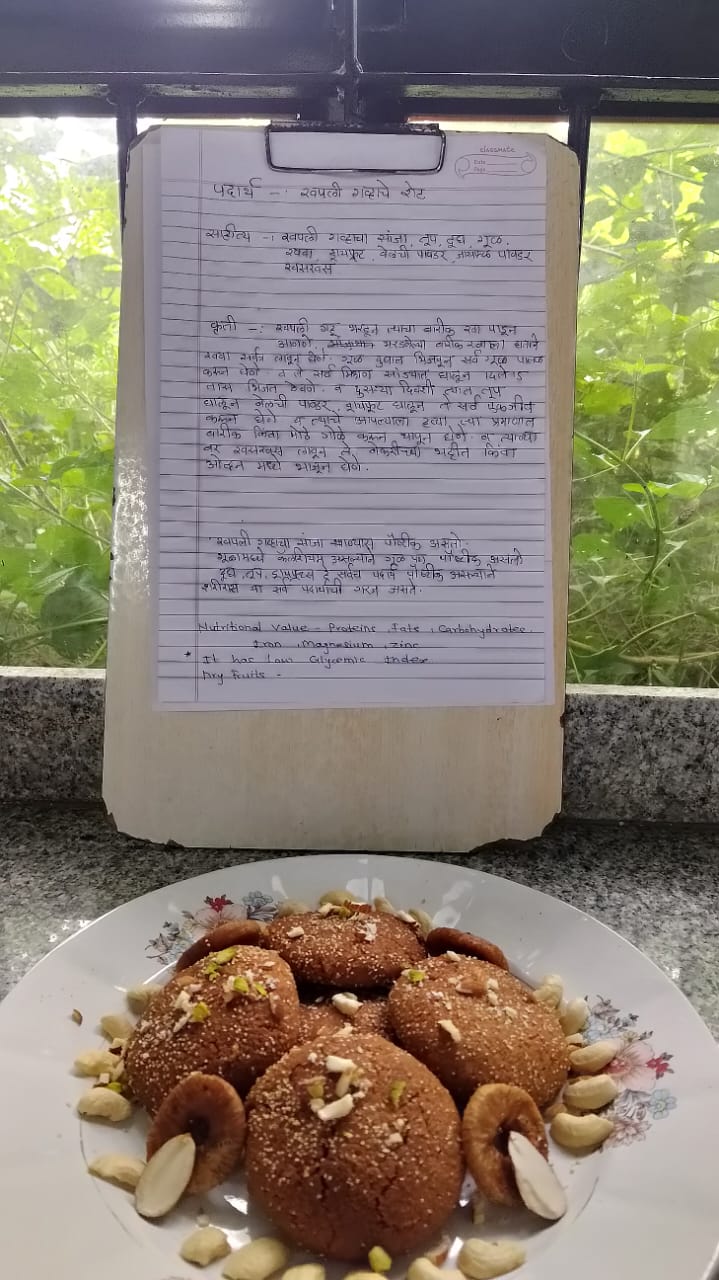 classmate
Date
Page
पदार्थ -: खपली गव्हाचे रोट
साहीत्य -: खपली गव्हाचा सांजा, तूप, दूध, गूळ,
रवबा, ड्रायफ्रूट, वेलची पावडर, जायफळ पावडर
खसखस
कृती -: खपली गहू भरडून त्याचा बारीक रवा पाडून
आणणे. भरडलेल्या बारीक रव्याला हाताने
रवबा सर्वत्र लावून घेणे. गूळ दुधात भिजवून सर्व गूळ पातळ
करून घेणे. व ते सर्व मिश्रण सांज्यात घालून
तास भिजत ठेवणे. व दुसऱ्या दिवशी त्यात तूप
घालून वेलची पावडर, ड्रायफ्रूट घालून ते सर्व एकजीव
करून घेणे व त्याचे आपल्याला हव्या त्या प्रमाणात
बारीक किंवा मोठे गोळे करून थापून घेणे. व त्याच्या
वर खसखस लावून ते बेकरीच्या भट्टीत किंवा
ओव्हन मध्ये भाजून घेणे.
खपली गव्हाचा सांजा खाण्यास पौष्टीक असतो.
गूळामध्ये कॅलशियम असल्याने गूळ पण पौष्टीक असतो
दूध, तूप, ड्रायफ्रूटस हे सर्वच पदार्थ पौष्टीक असल्याने
शरीरास या सर्व पदार्थाची गरज असते.
Nutritional Value - Proteins, Fats, Carbohydrates,
Iron, Magnesium, Zinc
* It has low Glycemic Index
Dry Fruits -